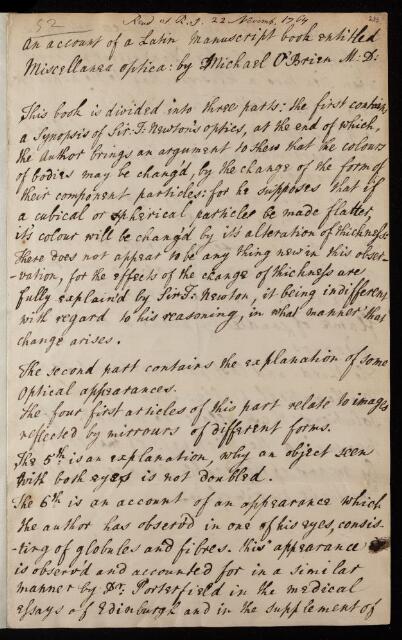 52
Read at R.S. 22 Novemb. 1764
An account of a Latin manuscript book entitled
Miscellanea optica: by Michael O'Brien M: D:
This book is divided into three parts: the first contains
a Synopsis of Sir I: Newton's optics, at the end of which,
the Author brings an argument to shew that the colours
of bodies may be chang'd, by the change of the form of
their component particles: for he supposes that if
a cubical or spherical particles be made flatter,
its colour will be chang'd by its alteration of thickness.
There does not appear to be any thing new in this obser-
-vation, for the effects of the change of thickness are
fully explain'd by Sir I: Newton, it being indifferent
with regard to his reasoning, in what manner that
change arises.
The second part contains the explanation of some
optical appearances.
The four first articles of this part relate to images
reflected by mirrours of different forms.
The 5th is an explanation, why an object seen
with both eyes is not doubled.
The 6th is an account of an appearance which
the author has observ'd in one of his eyes, consis-
-ting of globules and fibres. this appearance
is observ'd and accounted for in a similar
manner by Dr. Porterfield in the medical
essays of Edinburgh and in the supplement of